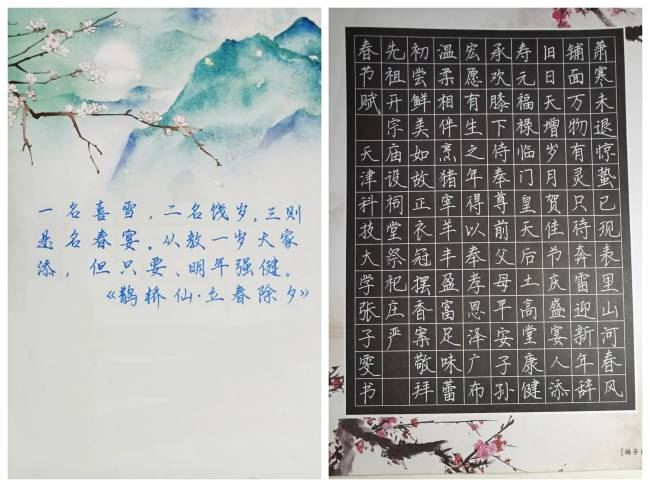 一名喜雪，二名饯岁，三则
是名春宴。从教一岁大家
添，但只要、明年强健。
《鹊桥仙·立春除夕》
萧寒未退惊蛰已现表里山河春风
铺面万物有灵只待奔雷迎新年辞
旧日天增岁月贺佳节庆盛宴人添
寿元福禄临门皇天后土高堂康健
承欢膝下侍奉尊前父母平安子孙
宏愿有生之年得以奉孝恩泽广布
温柔相伴烹猪宰羊丰盈富足味蕾
初尝鲜美如故正衣冠摆香案敬拜
先祖开宗庙设祠堂祭祀庄严
春节赋 天津科技大学张子雯书